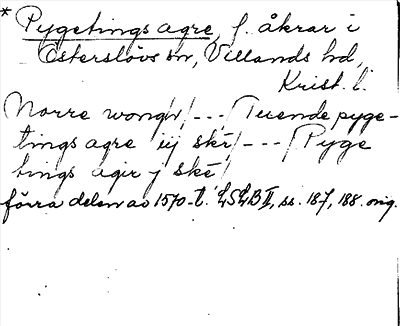 * Pygetings agre, f. åkrar i
Österslövs sn, Villands hd,
Krist. l.
Norre wongh/---/Tuende pyge-
tings agre iij skr/---/Pyge
tings agir j ske/
förra delen av 1570-t. LSLB II, ss. 187, 188. orig.